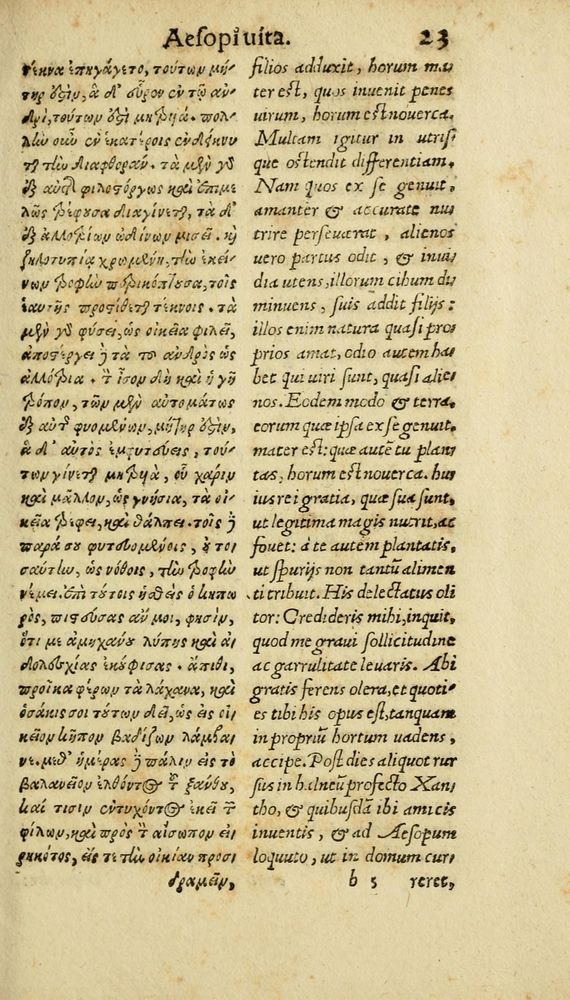 Aesopi uita. 23
τέκνα ἐπηγάγετο, τούτων μή-
τηρ ὅξιν, ἃ δ' εὗρον ἐν τῷ ἀν-
δρὶ, τούτων ὅξι μηξυιά. πολ-
λὼ οὖν ἐν ἑκατέροις ἐνδείκνυ
τ τὼ διαφθοράν. τὰ μὲν γὸ
ἐξ αὐτ φιλοστόργως καὶ ἐπιμε
λῶς τρέφουσα διαγίνετ, τὰ δ'
ἐξ ἀλλοτρίων ὠδίνων μισεῖ. κὴ
ζηλοτυπίᾳ χρωμένη, τὼ ἐκεί-
νων τροφὼ περικόπτουσα, τοῖς
ἑαυτῆς προστίθετ τέκνοις. τὰ
μὲν γὸ φύσει, ὡς οἰκεῖα φιλεῖ,
ἀποστέργει ἢ τὰ το ἀνδρὸς ὡς
ἀλλότρια. τ ἴσον δὴ καὶ ἡ γῆ
τρόπον, τῶν μὲν αὐτομάτως
ἐξ αὐτ φυομένων, μήτηρ ὅξιν,
ἃ δ' αὐτὸς ἐμφυτεύεις, τού-
των γίνετ μητρυιά, οὗ χάριν
καὶ μᾶλλον, ὡς γνήσια, τὰ οἰ-
κεῖα τρέφει, καὶ θάλπει. τοῖς ἢ
παρά σου φυτευομένοις, οὐ τοι
σαύτω, ὡς νόθοις, τὼ τροφὼ
νέμει. ἐπὶ τούτοις ἡσθεὶς ὁ κηπω
ρὸς, πιστεύσας ἄν μοι, φησὶν,
ὅτι με ἀμηχάνου λύπης καὶ ἀ
δολεσχίας ἐκούφισας. ἄπιθι,
προῖκα φέρων τὰ λάχανα, καὶ
ὁσάκις σοι τούτων δεῖ, ὡς εἰς οἰ-
κεῖον κῆπον βαδίζων λάμβα-
νε. μεθ' ἡμέρας ἢ πάλιν εἰς τὸ
βαλανεῖον ἐλθόντος τ ξάνθου,
καί τισιν ἐντυχόντος ἐκεῖ τ
φίλων, καὶ πρὸς τ αἴσωπον εἰ
ρηκότος, εἴς τε τὼ οἰκίαν προσι
δραμεῖν,
filios adduxit, horum ma
ter est, quos inuenit penes
uirum, horum est nouerca.
Multam igitur in utris
que ostendit differentiam.
Nam quos ex se genuit,
amanter & accurate nu
trire perseuerat, alienos
uero partus odit, & inui
dia utens, illorum cibum di
minuens, suis addit filijs:
illos enim natura quasi pro
prios amat, odio autem ha
bet qui uiri sunt, quasi alie
nos. Eodem modo & terra,
eorum quæ ipsa ex se genuit,
mater est: quæ autē tu plan
tas, horum est nouerca. hu
ius rei gratia, quæ sua sunt,
ut legitima magis nutrit, ac
fouet: à te autem plantatis,
ut spurijs non tantū alimen
ti tribuit. His delectatus oli
tor: Credideris mihi, inquit,
quod me graui sollicitudine
ac garrulitate leuaris. Abi
gratis ferens olera, et quoti-
es tibi his opus est, tanquam
in propriū hortum uadens,
accipe. Post dies aliquot rur
sus in balneū profecto Xan
tho, & quibusdā ibi amicis
inuentis, & ad Aesopum
loquuto, ut in domum cur
b 5 reret,